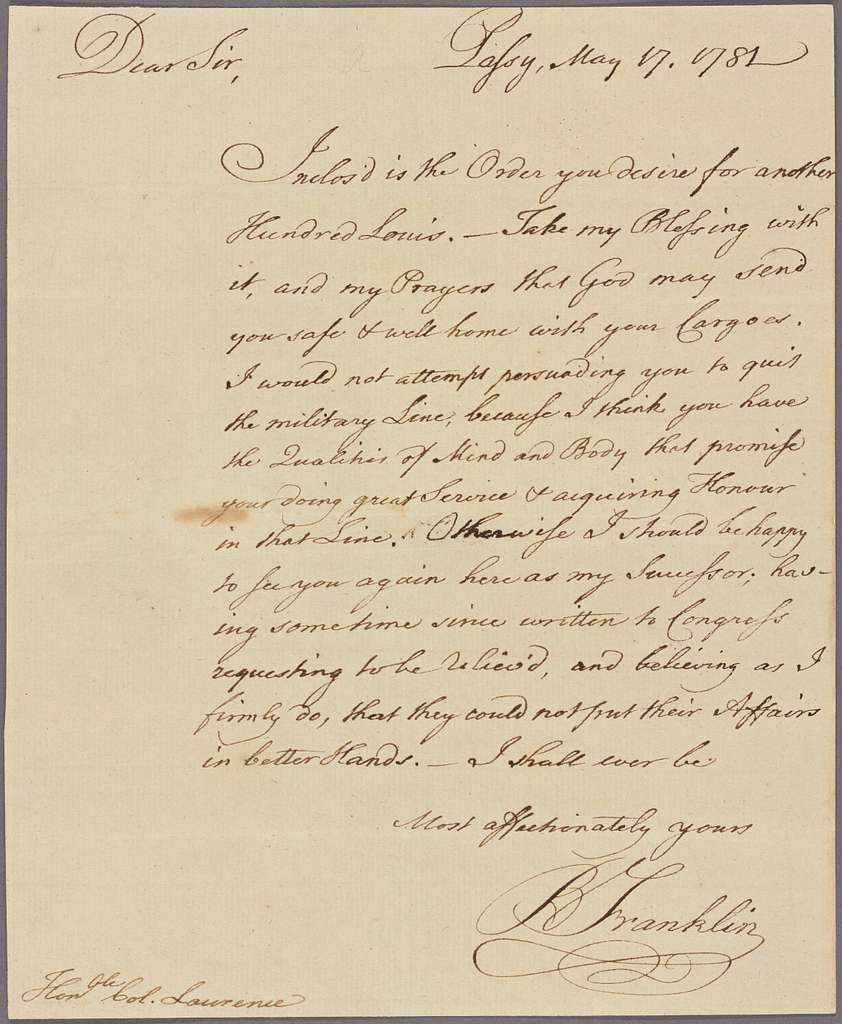 Dear Sir, Passy, May 17. 1781
Inclos'd is the Order you desire for another
Hundred Louis. — Take my Blessing with
it, and my Prayers that God may send
you safe & well home with your Cargoes.
I would not attempt persuading you to quit
the military Line, because I think you have
the Qualities of Mind and Body that promise
your doing great Service & acquiring Honour
in that Line. Otherwise I should be happy
to see you again here as my Successor; hav-
ing sometime since written to Congress
requesting to be reliev'd, and believing as I
firmly do, that they could not put their Affairs
in better Hands. — I shall ever be
Most affectionately yours
B Franklin
Honble Col. Laurence